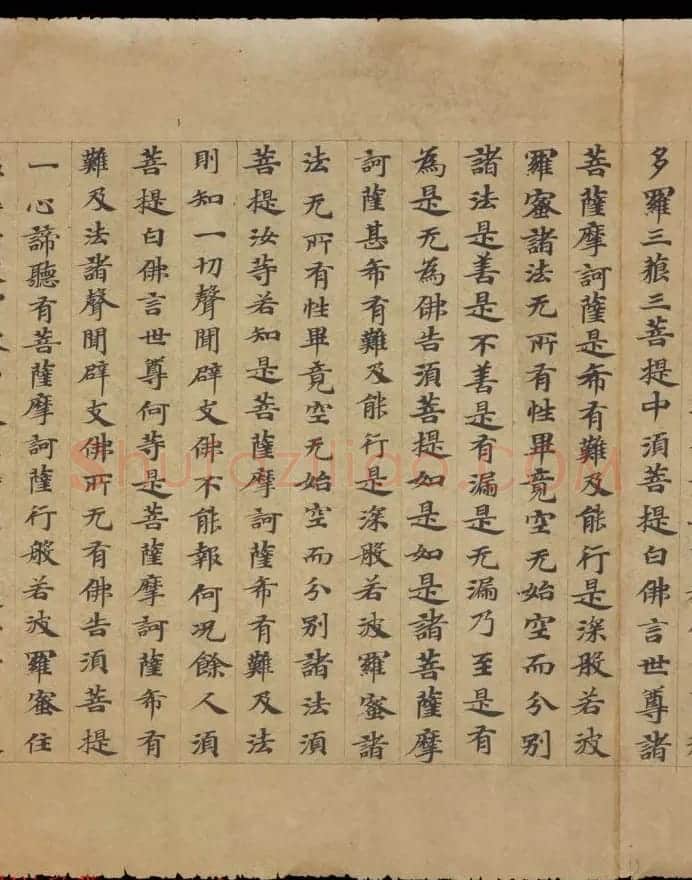 多羅三藐三菩提中須菩提白佛言世尊諸
菩薩摩訶薩是希有難及能行是深般若波
羅蜜諸法无所有性畢竟空无始空而分別
諸法是善是不善是有漏是无漏乃至是有
為是无為佛告須菩提如是如是諸菩薩摩
訶薩甚希有難及能行是深般若波羅蜜諸
法无所有性畢竟空无始空而分別諸法須
菩提汝等若知是菩薩摩訶薩希有難及法
則知一切聲聞辟支佛不能報何況餘人須
菩提白佛言世尊何等是菩薩摩訶薩希有
難及法諸聲聞辟支佛所无有佛告須菩提
一心諦聽有菩薩摩訶薩行般若波羅蜜住
Shufaziliao.COM